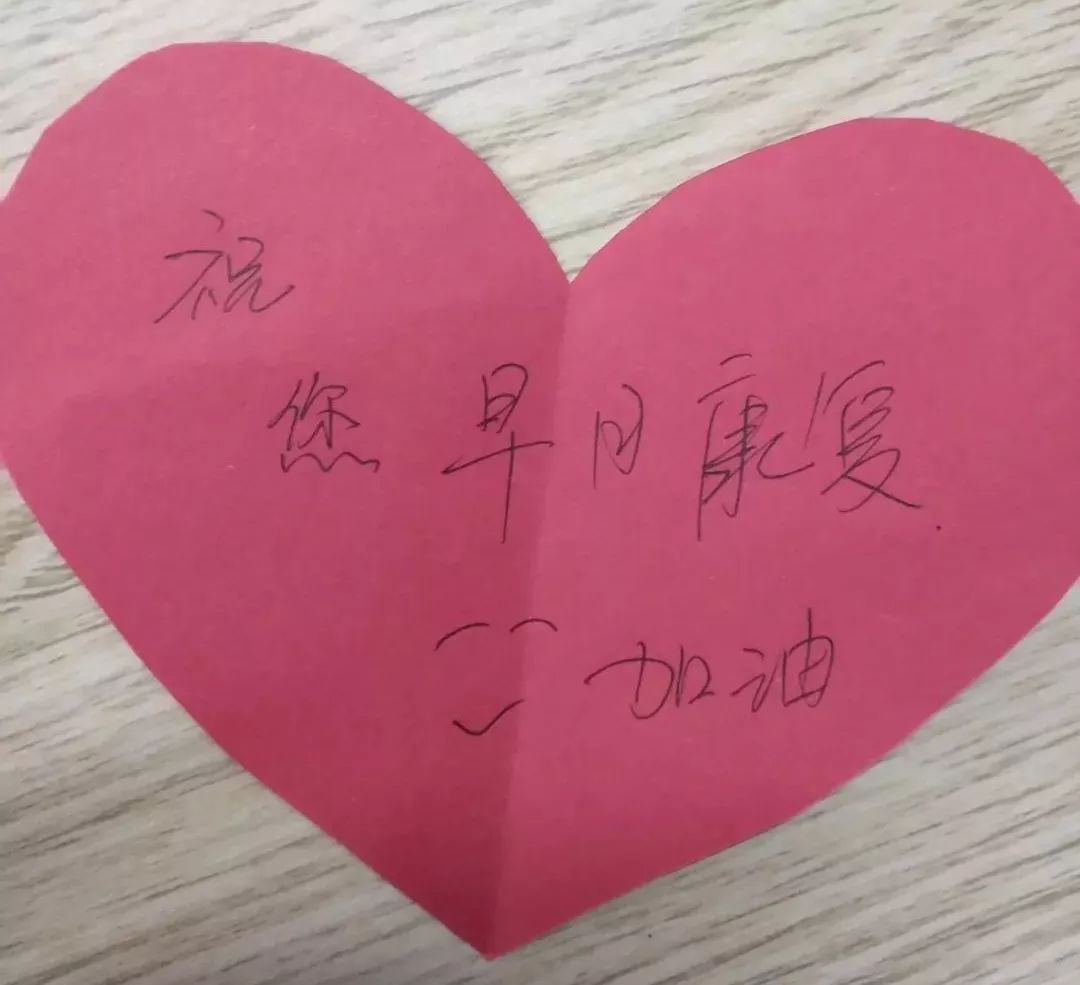 祝
您早日康复.
加油